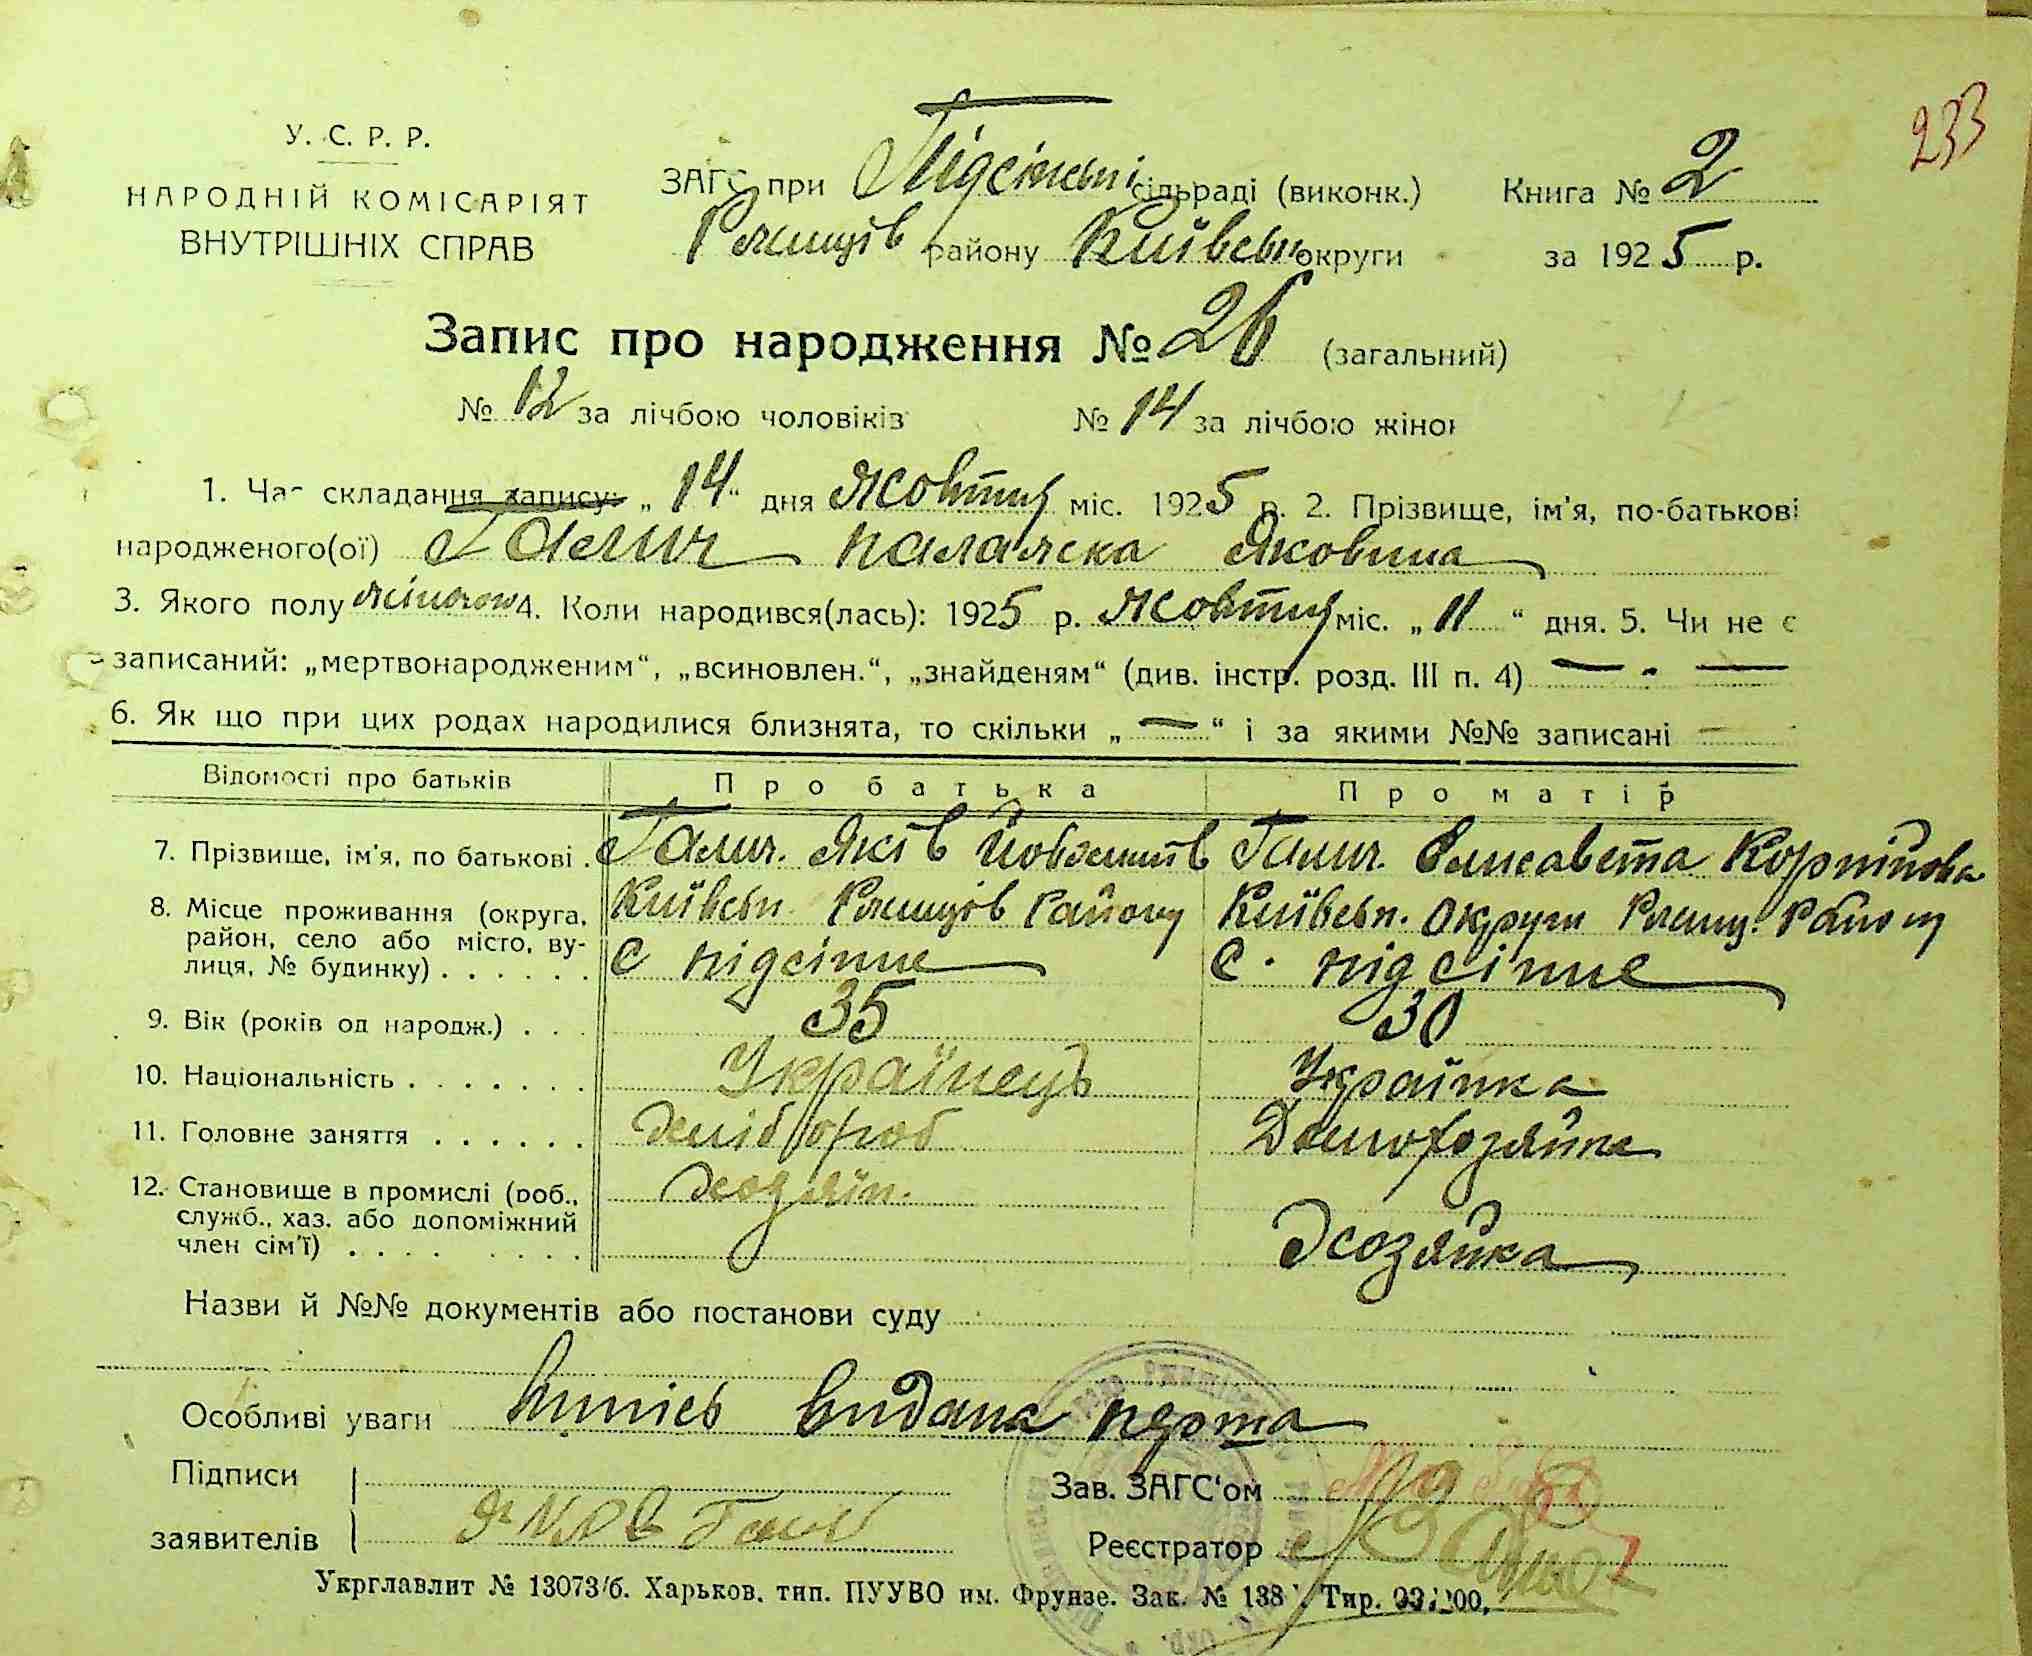 233
У. С. Р. Р.
НАРОДНІЙ КОМІСАРІЯТ
ВНУТРІШНІХ СПРАВ
ЗАГС при Підсінській сільраді (виконк.)
Ржищів району Київськ округи
Книга № 2
за 1925 р.
Запис про народження № 26 (загальний)
№ 12 за лічбою чоловіків № 14 за лічбою жінок
1. Час складання запису: „14" дня Жовтня міс. 1925 р. 2. Прізвище, ім'я, по-батькові
народженого(ої) Галич палажка Яковина
3. Якого полу жіночого 4. Коли народився(лась): 1925 р. Жовтня міс. „11" дня. 5. Чи не є
записаний: „мертвонародженим", „всиновлен.", „знайденям" (див. інстр. розд. III п. 4) — " —
6. Як що при цих родах народилися близнята, то скільки „—" і за якими №№ записані —
Відомості про батьків Про батька Про матір
7. Прізвище, ім'я, по батькові . Галич. Яків Галич. Єлисавета Корнійова
8. Місце проживання (округа, район, село або місто, вулиця, № будинку) . . . . . .
Київськ Ржищів Району
с підсінне
Київськ. Округи Ржищ. Району
с. підсінне
9. Вік (років од народж.) . . . 35 30
10. Національність . . . . . . . Українець Українка
11. Головне заняття . . . . . . Хлібороб Домохозяйка
12. Становище в промислі (роб., служб., хаз. або допоміжний член сім'ї) . . . . . . . .
Хозяїн.
Хозяйка
Назви й №№ документів або постанови суду
Особливі уваги випись видана перта
Підписи
заявителів Яков Галич
Зав. ЗАГС'ом
Реєстратор
Укрглавлит № 13073/б. Харьков. тип. ПУУВО им. Фрунзе. Зак. № 138 Тир.